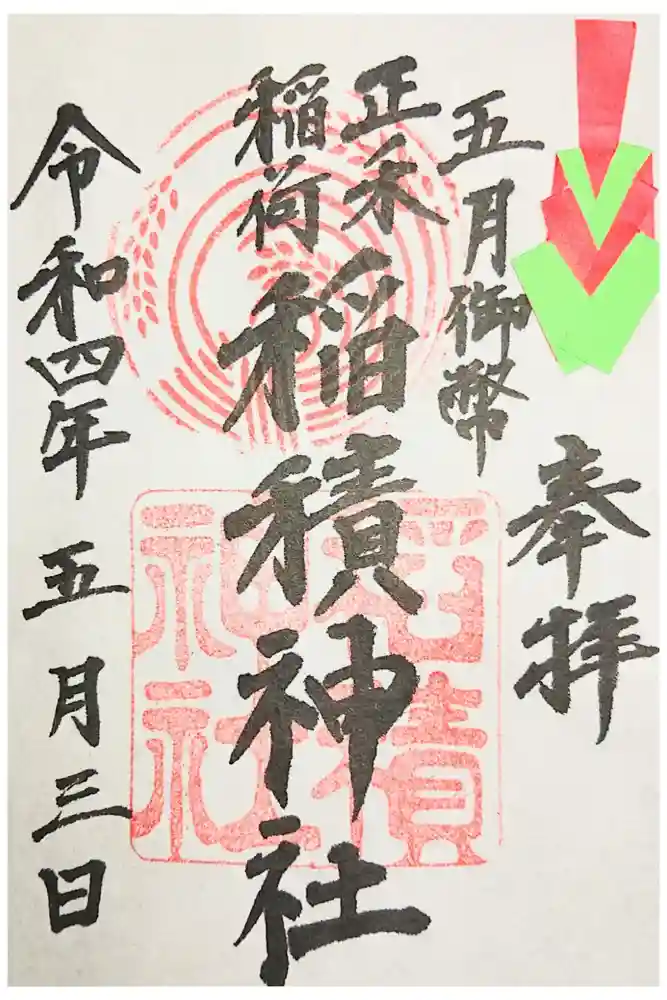 奉拝
五月御幣
正木
稲荷
稲積神社
令和四年五月三日
稲積神社